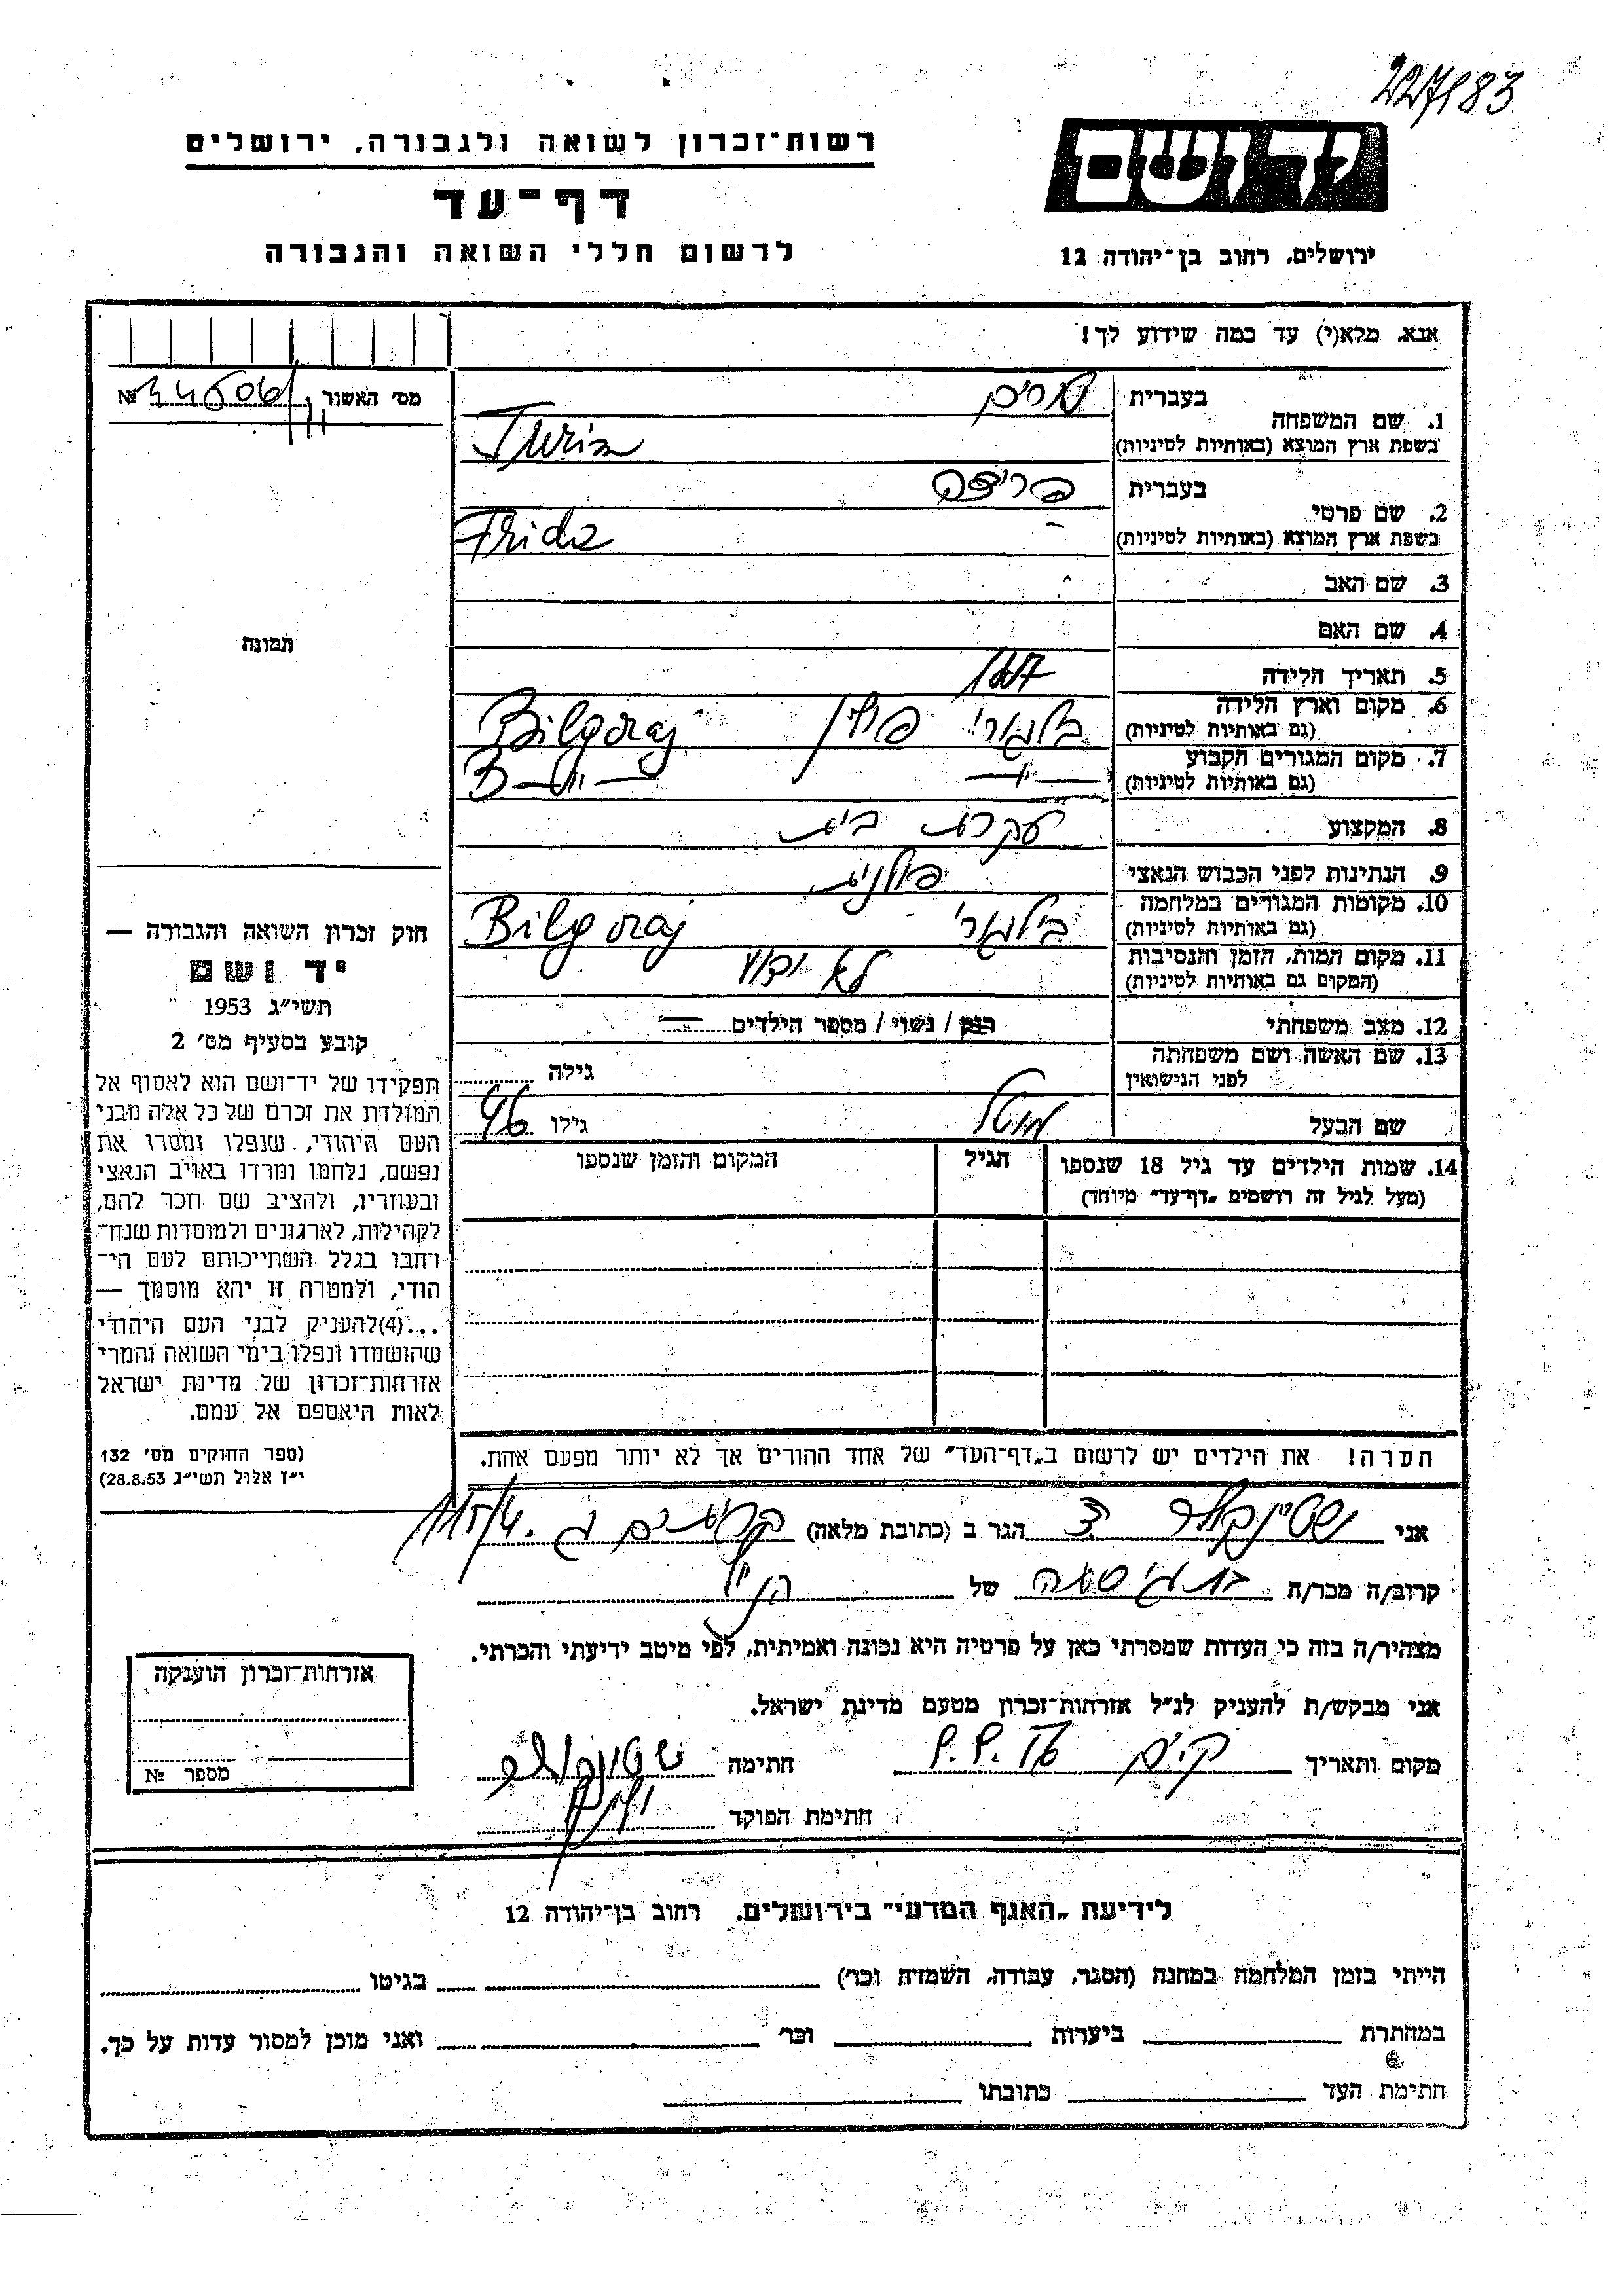 227183
רשות־זכרון לשואה ולגבורה, ירושלים
דף־עד
לרשום חללי השואה והגבורה
יד ושם
ירושלים, רחוב בן־יהודה 12
אנא, מלא(י) עד כמה שידוע לך!
מס׳ האשור №
1. שם המשפחה
בעברית
בשפת ארץ המוצא (באותיות לטיניות)
2. שם פרטי
בעברית פרידה
בשפת ארץ המוצא (באותיות לטיניות) Frida
3. שם האב
4. שם האם
5. תאריך הלידה
6. מקום וארץ הלידה
(גם באותיות לטיניות) בילגורי פולין Bilgoraj
7. מקום המגורים הקבוע
(גם באותיות לטיניות)
8. המקצוע עקרת בית
9. הנתינות לפני הכבוש הנאצי פולנית
10. מקומות המגורים במלחמה
(גם באותיות לטיניות) בילגורי Bilgoraj
11. מקום המות, הזמן והנסיבות
(המקום גם באותיות לטיניות) לא ידוע
12. מצב משפחתי רווק / נשוי / מספר הילדים
13. שם האשה ושם משפחתה
לפני הנישואין גילה
שם הבעל מוטל גילו 46
14. שמות הילדים עד גיל 18 שנספו
(מעל לגיל זה רושמים „דף־עד״ מיוחד)
הגיל
המקום והזמן שנספו
הערה! את הילדים יש לרשום ב„דף־העד״ של אחד ההורים אך לא יותר מפעם אחת.
תמונה
חוק זכרון השואה והגבורה —
יד ושם
תשי״ג 1953
קובע בסעיף מס׳ 2
תפקידו של יד־ושם הוא לאסוף אל
המולדת את זכרם של כל אלה מבני
העם היהודי, שנפלו ומסרו את
נפשם, נלחמו ומרדו באויב הנאצי
ובעוזריו, ולהציב שם וזכר להם,
לקהילות, לארגונים ולמוסדות שנח־
רחבו בגלל השתייכותם לעם הי־
הודי, ולמטרה זו יהא מוסמך —
...(4)להעניק לבני העם היהודי
שהושמדו ונפלו בימי השואה והמרי
אזרחות־זכרון של מדינת ישראל
לאות היאספם אל עמם.
(ספר החוקים מס׳ 132
י״ז אלול תשי״ג 28.8.53)
אני הגר ב (כתובת מלאה)
קרוב/ה מכר/ה של הנ״ל
מצהיר/ה בזה כי העדות שמסרתי כאן על פרטיה היא נכונה ואמיתית, לפי מיטב ידיעתי והכרתי.
אני מבקש/ת להעניק לנ״ל אזרחות־זכרון מטעם מדינת ישראל.
מקום ותאריך חתימה
חתימת הפוקד
אזרחות־זכרון הוענקה
מספר №
לידיעת „האגף המדעי״ בירושלים, רחוב בן־יהודה 12
הייתי בזמן המלחמה במחנה (הסגר, עבודה, השמדה וכו׳) בגיטו
במחתרת ביערות וכו׳ ואני מוכן למסור עדות על כך.
חתימת העד כתובתו